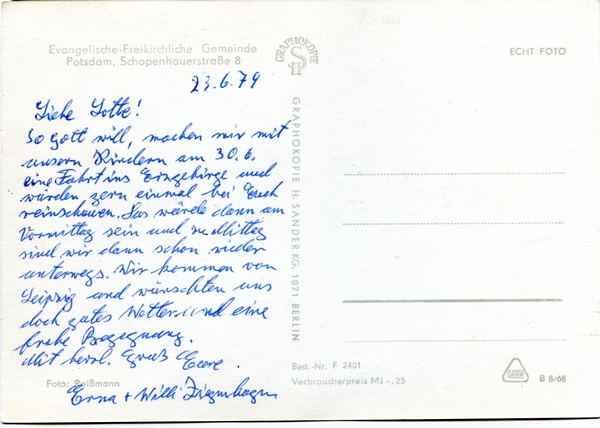 Evangelische-Freikirchliche Gemeinde
Potsdam, Schopenhauerstraße 8
23.6.79
Liebe Lotte!
So Gott will, machen wir mit
unsern Kindern am 30.6.
eine Fahrt ins Erzgebirge und
würden gern einmal bei Euch
reinschauen. Das würde dann am
Vormittag sein und zu Mittag
sind wir dann schon wieder
unterwegs. Wir kommen von
Leipzig und wünschten uns
doch gutes Wetter und eine
frohe Begegnung.
Mit herzl. Gruß Eure
Erna + Willi Ziegenhagen
Foto: Reißmann
GRAPHOKOPIE
GRAPHOKOPIE H. SANDER KG, 1071 BERLIN
ECHT FOTO
Best.-Nr. F 2401
Verbraucherpreis M -,25
B 8/68